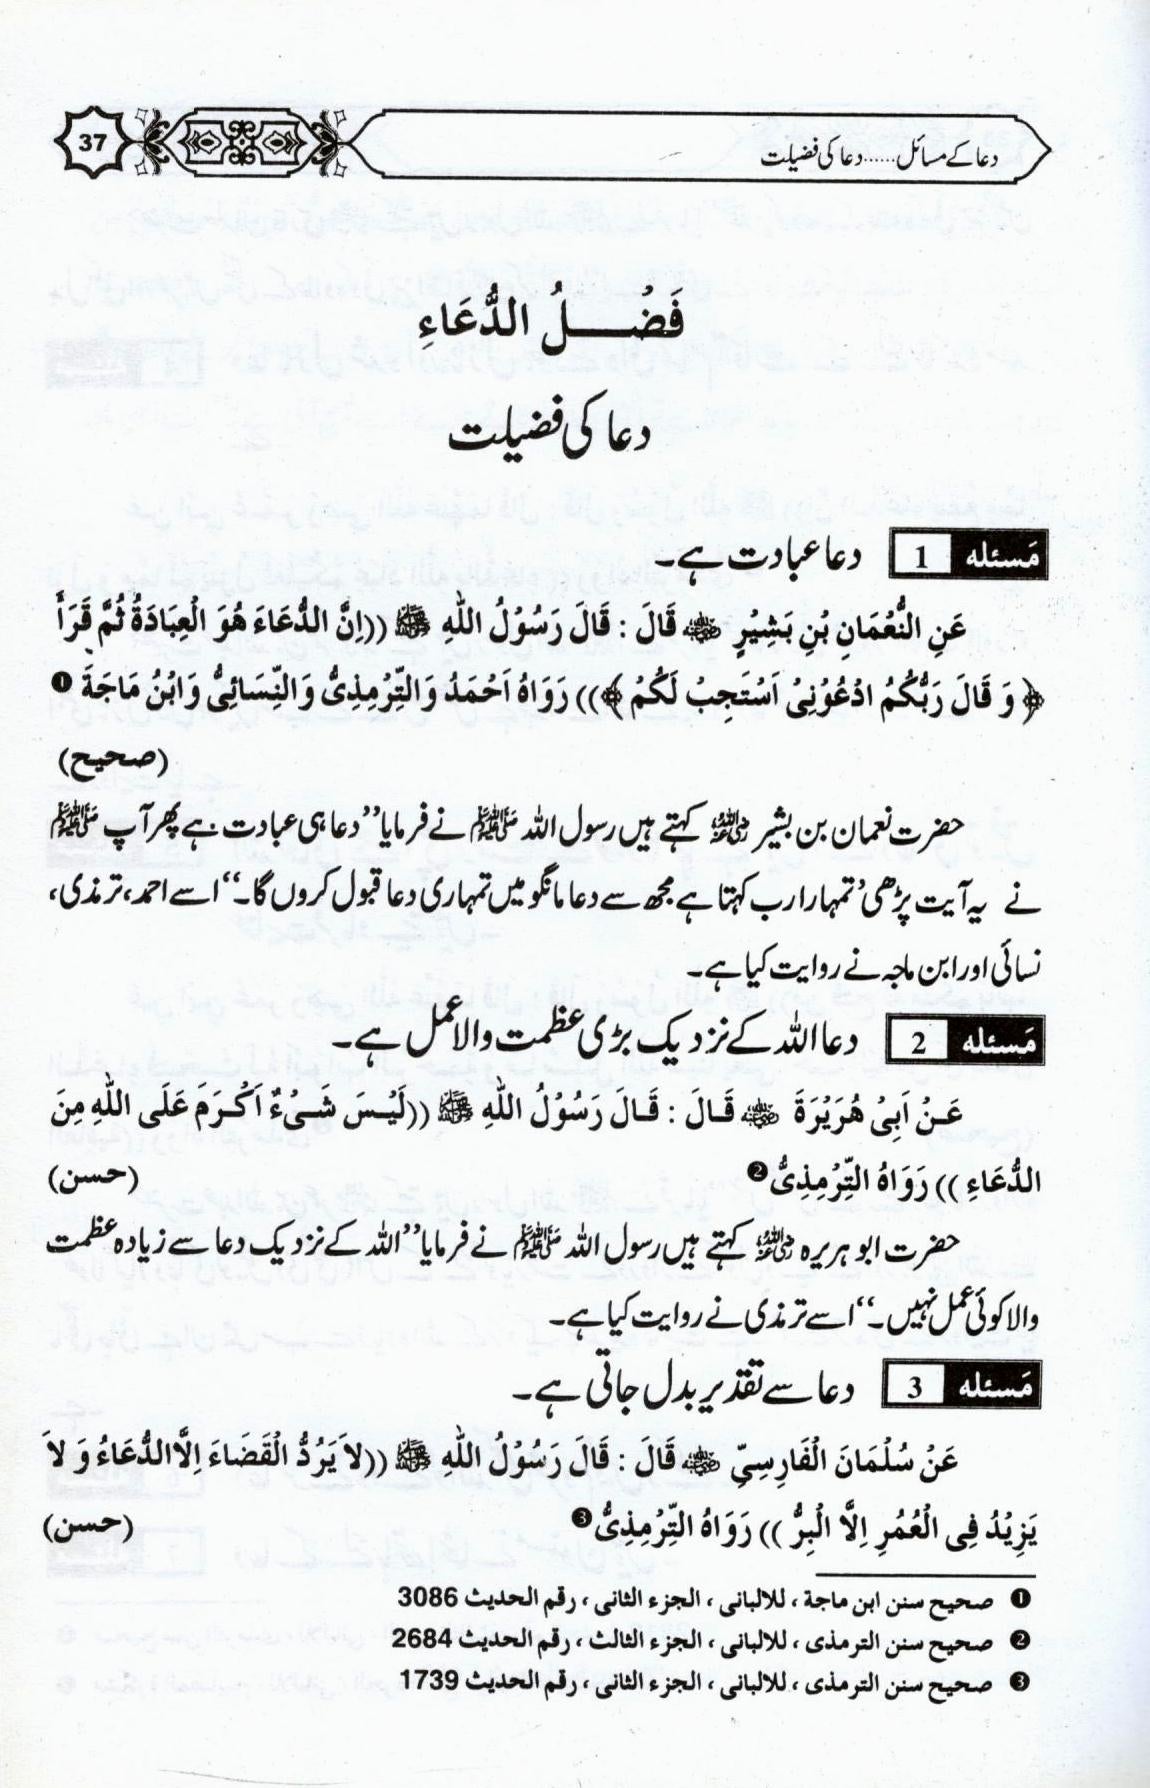 دعا کے مسائل......دعا کی فضیلت
37
فَضْلُ الدُّعَاءِ
دعا کی فضیلت
مَسئله 1 دعا عبادت ہے۔
عَنِ النُّعْمَانِ بْنِ بَشِيْرٍ رضی اللہ عنہ قَالَ : قَالَ رَسُوْلُ اللهِ ﷺ ((اِنَّ الدُّعَاءَ هُوَ الْعِبَادَةُ ثُمَّ قَرَأَ
﴿ وَ قَالَ رَبُّكُمُ ادْعُوْنِىْ اَسْتَجِبْ لَكُمْ ﴾)) رَوَاهُ اَحْمَدُ وَالتِّرْمِذِىُّ وَالنِّسَائِىُّ وَابْنُ مَاجَةَ ❶
(صحیح)
حضرت نعمان بن بشیر رضی اللہ عنہ کہتے ہیں رسول اللہ ﷺ نے فرمایا ’’دعا ہی عبادت ہے پھر آپ ﷺ
نے یہ آیت پڑھی ’تمہارا رب کہتا ہے مجھ سے دعا مانگو میں تمہاری دعا قبول کروں گا۔‘‘ اسے احمد، ترمذی،
نسائی اور ابن ماجہ نے روایت کیا ہے۔
مَسئله 2 دعا اللہ کے نزدیک بڑی عظمت والا عمل ہے۔
عَنْ اَبِىْ هُرَيْرَةَ رضی اللہ عنہ قَالَ : قَالَ رَسُوْلُ اللهِ ﷺ ((لَيْسَ شَىْءٌ اَكْرَمَ عَلَى اللهِ مِنَ
الدُّعَاءِ )) رَوَاهُ التِّرْمِذِىُّ ❷ (حسن)
حضرت ابو ہریرہ رضی اللہ عنہ کہتے ہیں رسول اللہ ﷺ نے فرمایا ’’اللہ کے نزدیک دعا سے زیادہ عظمت
والا کوئی عمل نہیں۔‘‘ اسے ترمذی نے روایت کیا ہے۔
مَسئله 3 دعا سے تقدیر بدل جاتی ہے۔
عَنْ سُلْمَانَ الْفَارِسِيِّ رضی اللہ عنہ قَالَ : قَالَ رَسُوْلُ اللهِ ﷺ ((لاَ يَرُدُّ الْقَضَاءَ اِلاَّ الدُّعَاءُ وَ لاَ
يَزِيْدُ فِى الْعُمُرِ اِلاَّ الْبِرُّ )) رَوَاهُ التِّرْمِذِىُّ ❸ (حسن)
❶ صحيح سنن ابن ماجة ، للالبانى ، الجزء الثانى ، رقم الحديث 3086
❷ صحيح سنن الترمذى ، للالبانى ، الجزء الثالث ، رقم الحديث 2684
❸ صحيح سنن الترمذى ، للالبانى ، الجزء الثانى ، رقم الحديث 1739